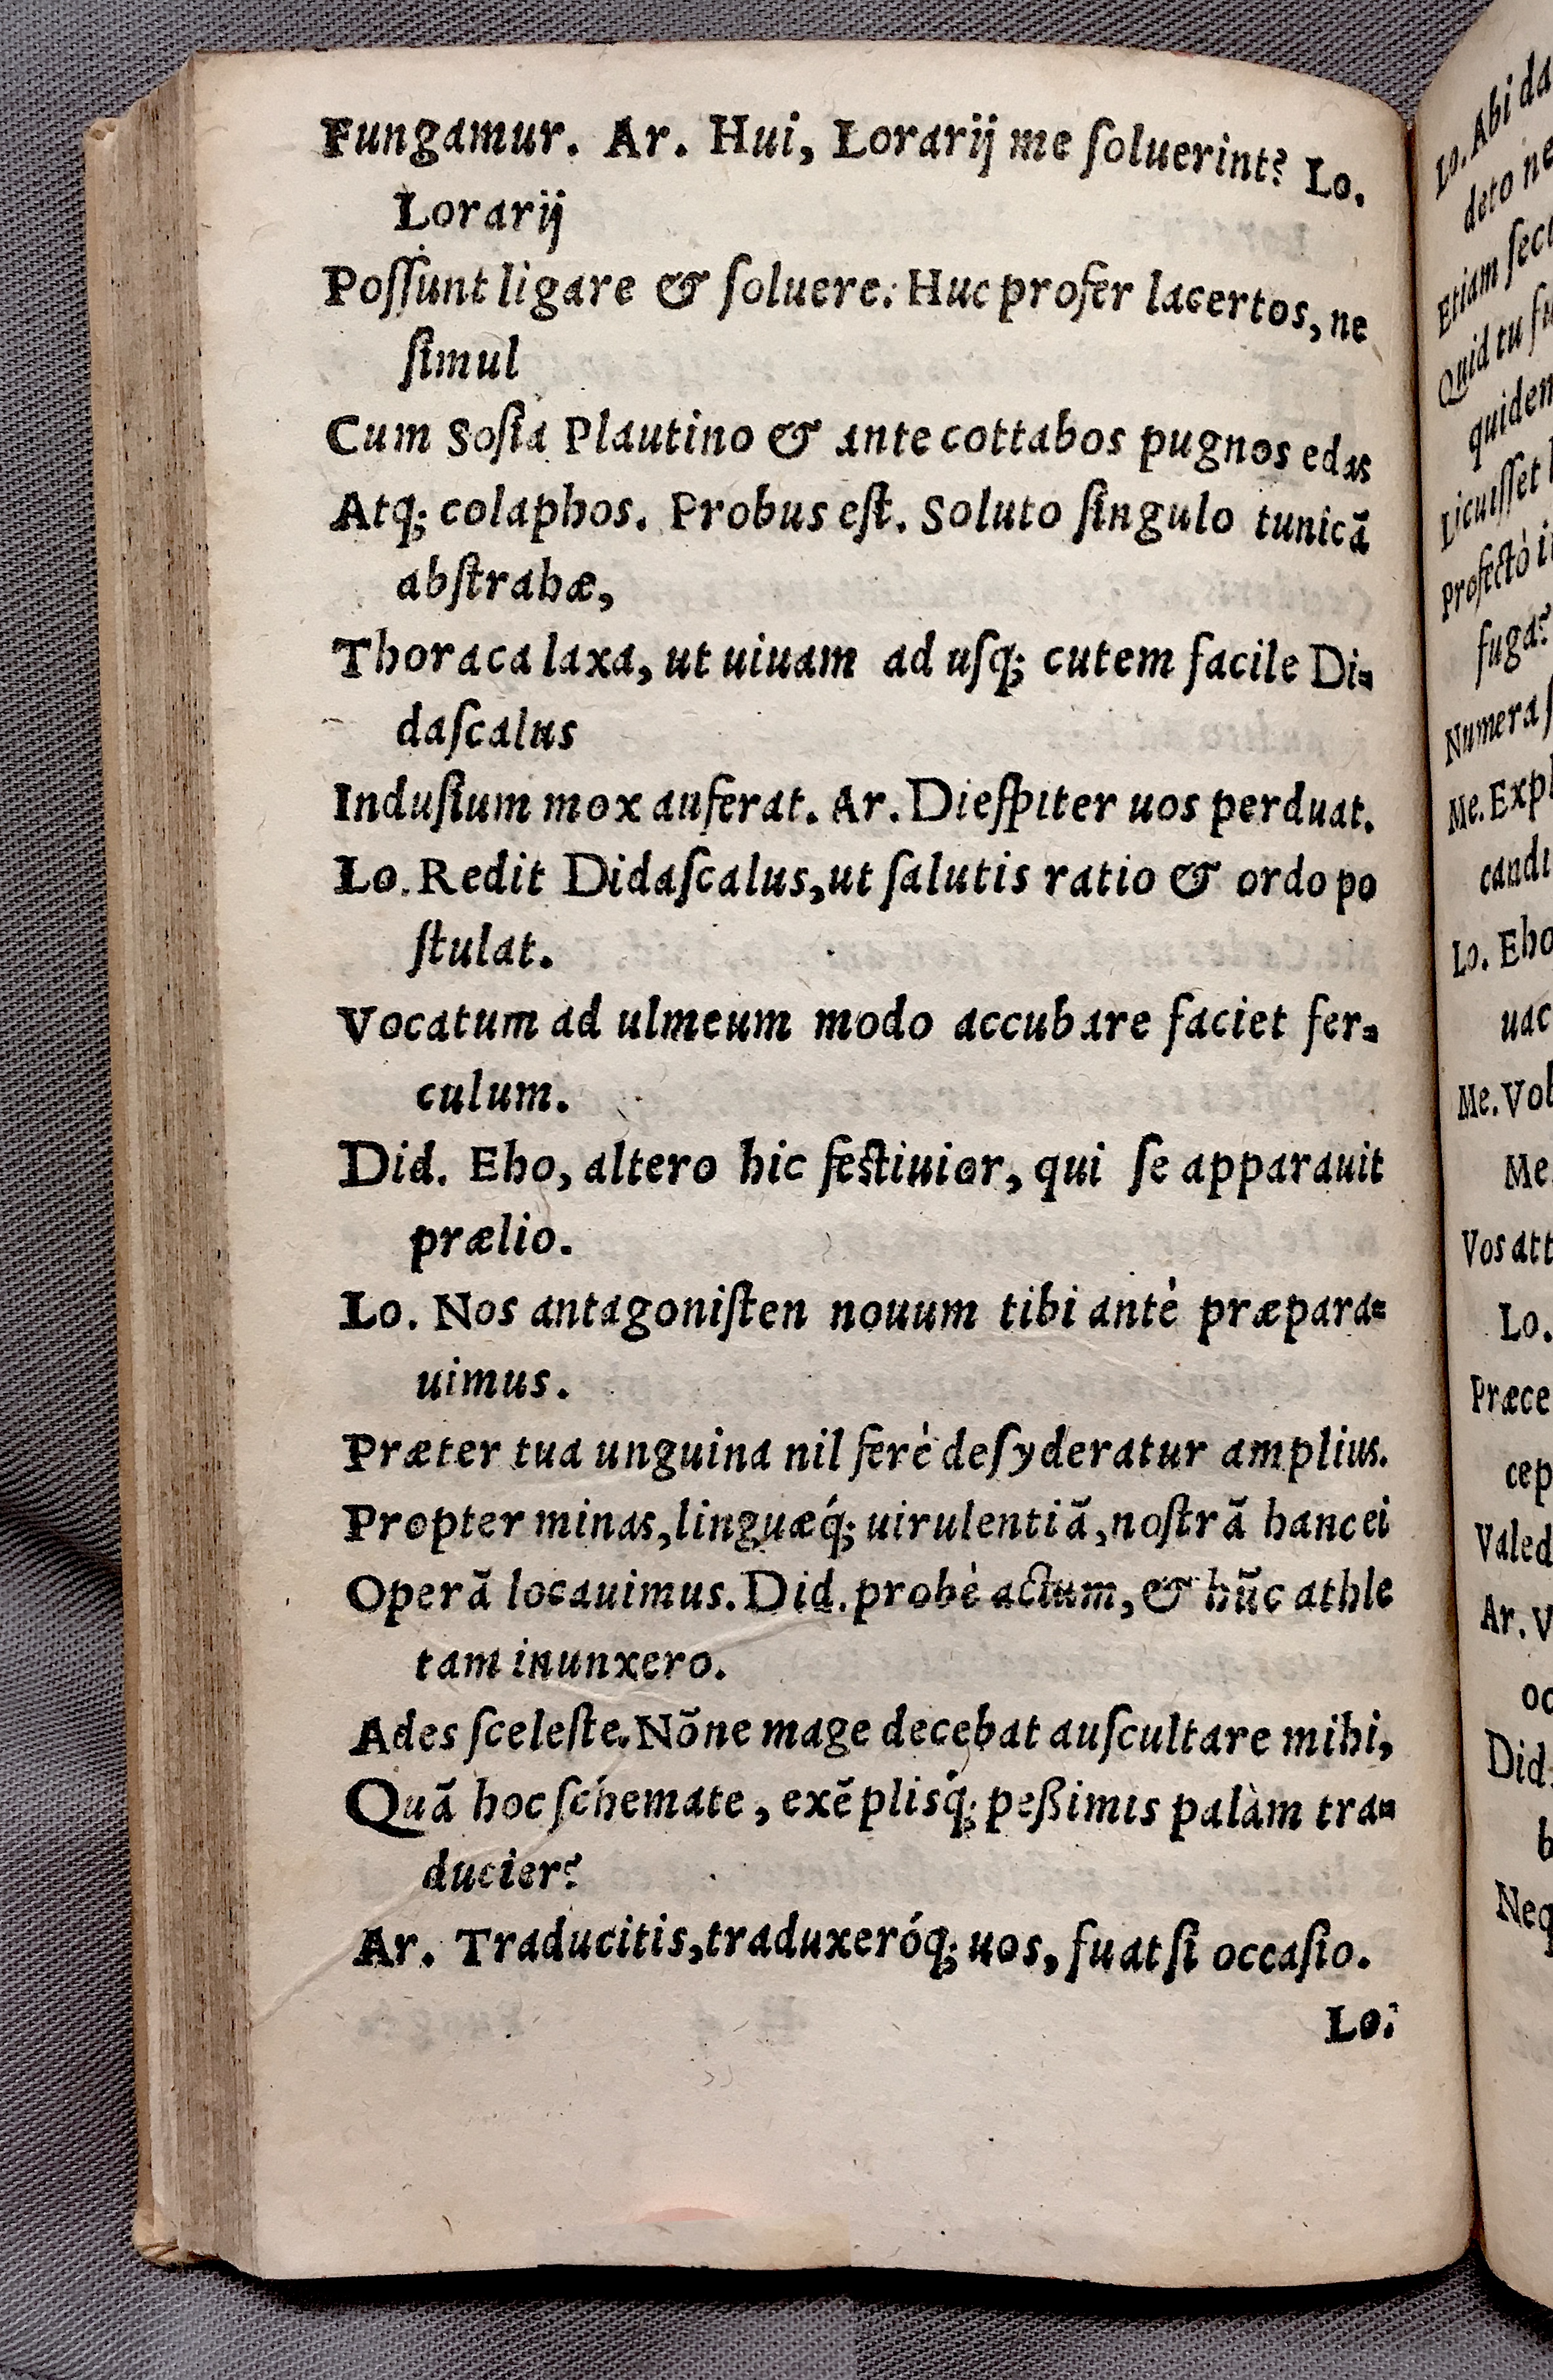 Fungamur. Ar. Hui, Lorarij me ſoluerint? Lo.
Lorarij
Poſſunt ligare & ſoluere. Huc profer lacertos, ne
ſimul
Cum Soſia Plautino & ante cottabos pugnos edas
Atq; colaphos. Probus eſt. Soluto ſingulo tunicã
abſtrahæ,
Thoraca laxa, ut uiuam ad uſq; cutem facile Di-
daſcalus
Induſium mox auferat. Ar. Dieſpiter uos perduat.
Lo. Redit Didaſcalus, ut ſalutis ratio & ordo po
ſtulat.
Vocatum ad ulmeum modo accubare faciet fer-
culum.
Did. Eho, altero hic feſtiuior, qui ſe apparauit
prælio.
Lo. Nos antagoniſten nouum tibi antè præpara-
uimus.
Præter tua unguina nil ferè deſyderatur amplius.
Propter minas, linguæq́; uirulentiã, noſtrã hanc ei
Operã locauimus. Did. probè actum, & hũc athle
tam inunxero.
Ades ſceleſte. Nõne mage decebat auſcultare mihi,
Quã hoc ſchemate, exẽplisq́; peßimis palàm tra-
ducier?
Ar. Traducitis, traduxeróq; uos, fuat ſi occaſio.
Lo.
Lo. Abi
deto
Etiam
Quid tu
quidem
Licuiſſet
Profectò
fuga?
Numera
Me.
Lo. Eho
Me.
Me
Vos
Lo.
Ar.
Did.